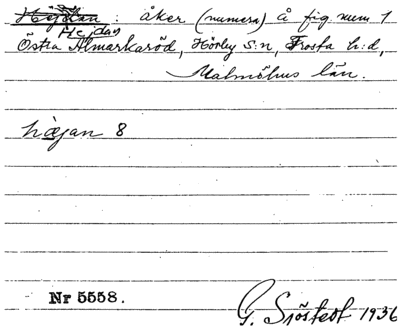 Höjdan : åker (numera) å fig. num. 1
Hejdan
Östra Älmarkaröd, Hörby S:n, Frosta h:d,
Malmöhus län.
hæjan 8
Nr 5558.
G. Sjöstedt 1936